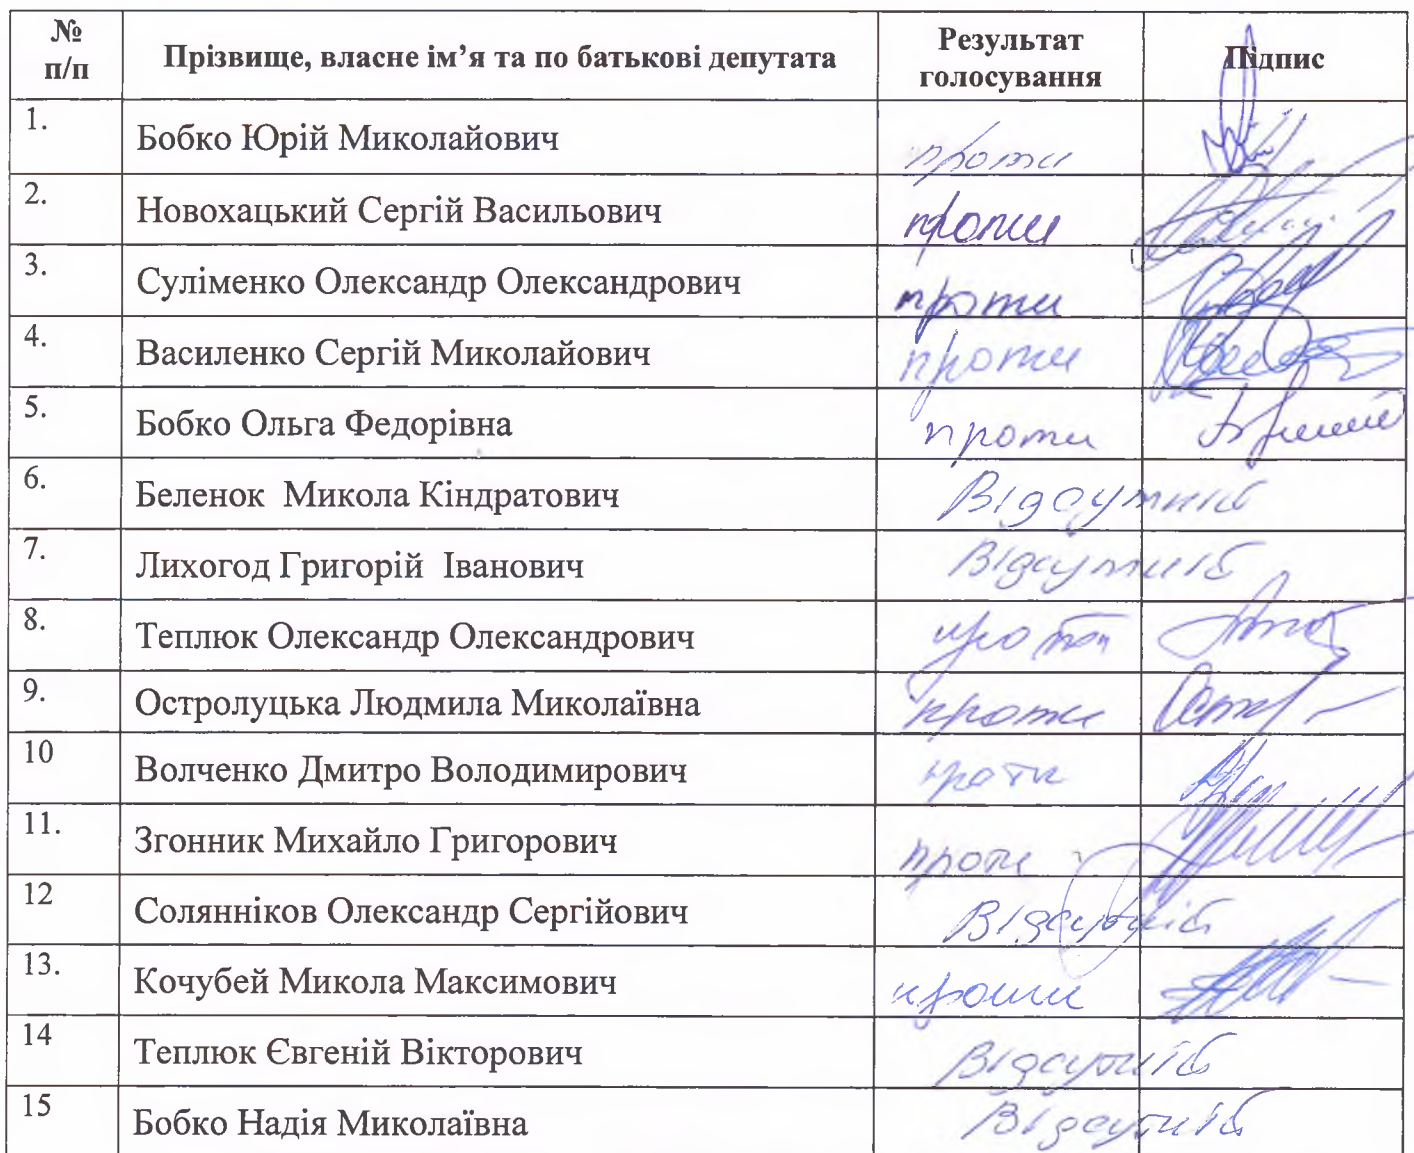 № п/п Прізвище, власне ім’я та по батькові депутата Результат голосування Підпис
1. Бобко Юрій Миколайович проти
2. Новохацький Сергій Васильович проти
3. Суліменко Олександр Олександрович проти
4. Василенко Сергій Миколайович проти
5. Бобко Ольга Федорівна проти
6. Беленок Микола Кіндратович Відсутній
7. Лихогод Григорій Іванович Відсутній
8. Теплюк Олександр Олександрович проти
9. Остролуцька Людмила Миколаївна проти
10 Волченко Дмитро Володимирович проти
11. Згонник Михайло Григорович проти
12 Солянніков Олександр Сергійович Відсутній
13. Кочубей Микола Максимович проти
14 Теплюк Євгеній Вікторович Відсутній
15 Бобко Надія Миколаївна Відсутній